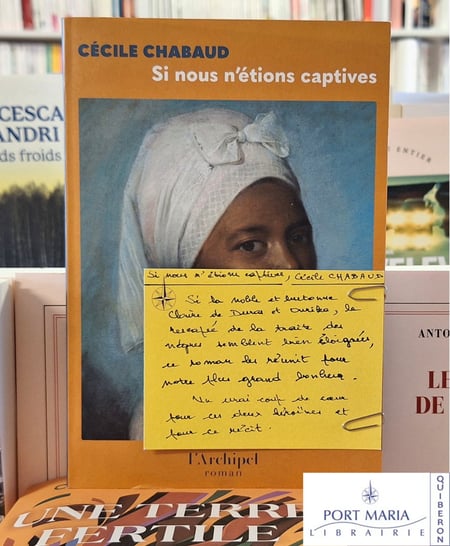 CÉCILE CHABAUD
Si nous n'étions captives
Si nous n'étions captives, Cécile CHABAUD
Si la noble et bretonne
Claire de Duras et Ourika, la
rescapée de la traite des
nègres semblent bien éloignées,
ce roman les réunit pour
notre plus grand bonheur.
Un vrai coup de cœur
pour ces deux héroïnes et
pour ce récit.
l'Archipel
roman
CESCA
ANDRI
ds froids
ENTIER
ANTO
LE
DE
UNE TERRE
FERTILE
PORT MARIA
LIBRAIRIE
QUIBERON